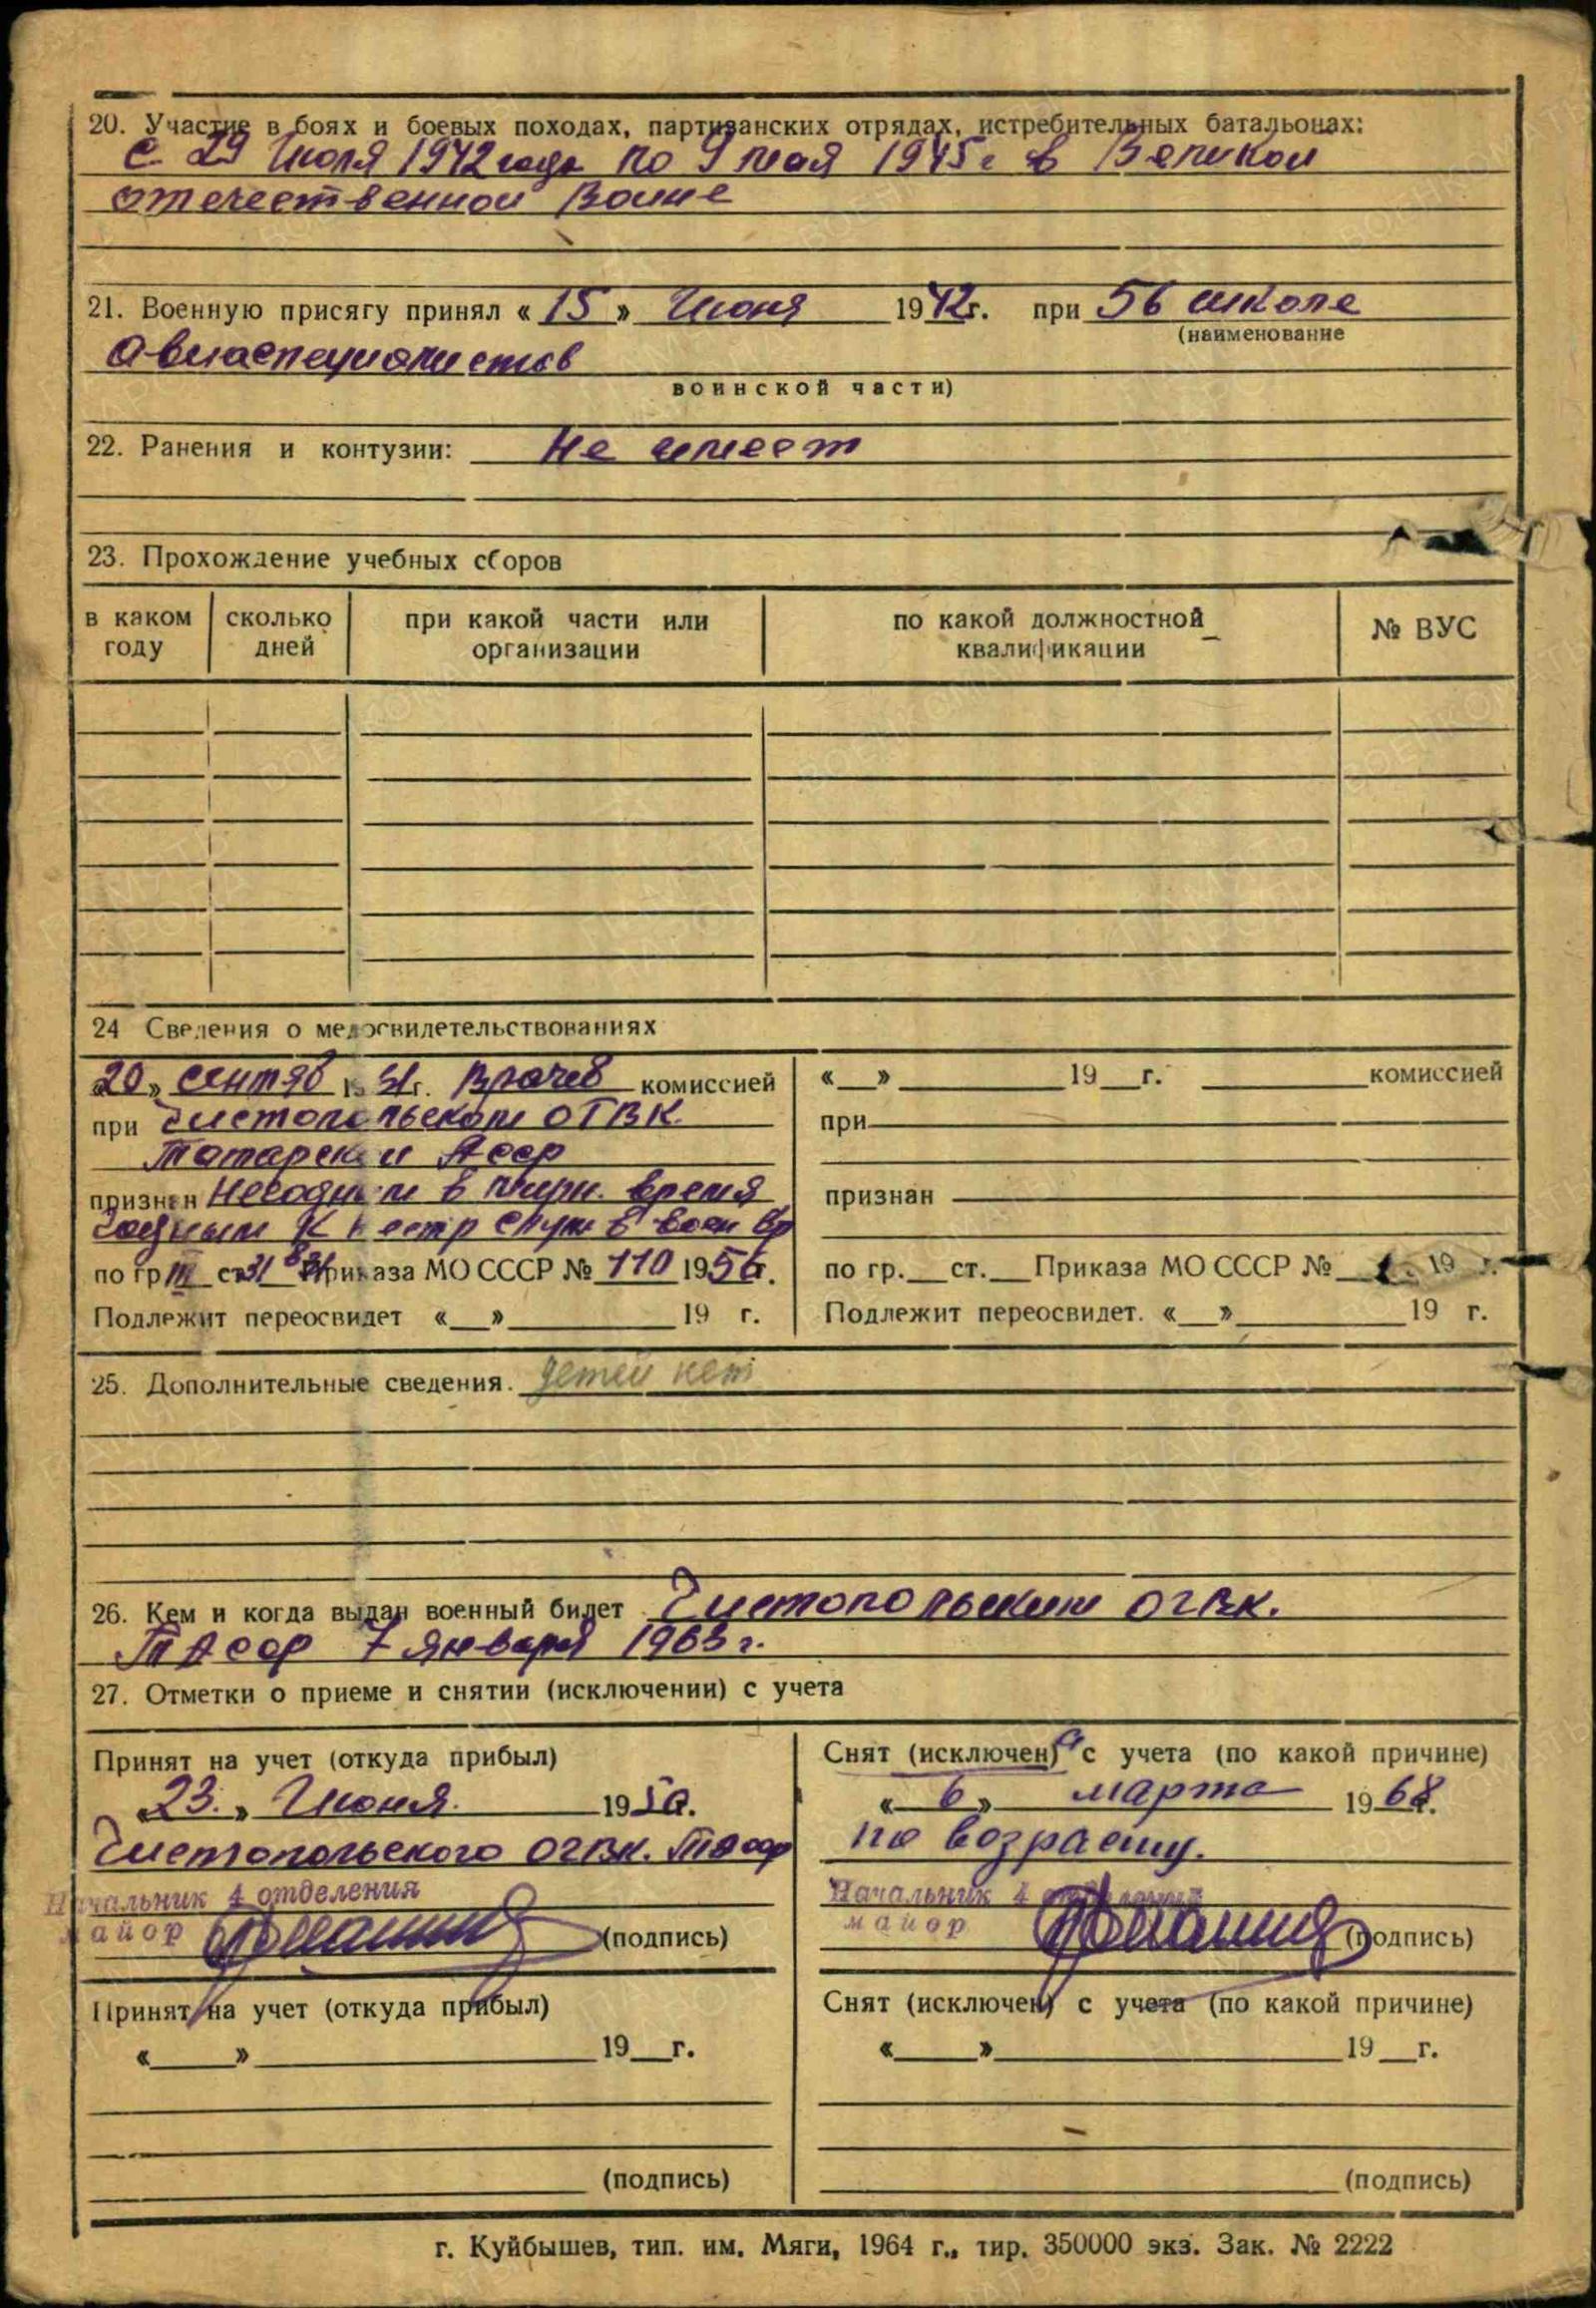 20. Участие в боях и боевых походах, партизанских отрядах, истребительных батальонах:
с 29 Июля 1942 года по 9 мая 1945г в Великой
отечественной Войне
21. Военную присягу принял « 15 » Июня 1942г. при 56 школе
(наименование
Авиаспециалистов
воинской части)
22. Ранения и контузии: Не имеет
23. Прохождение учебных сборов
в каком году
сколько дней
при какой части или организации
по какой должностной квалификации
№ ВУС
24 Сведения о медосвидетельствованиях
«20» сентяб г. Врачеб комиссией
при Чистопольском ОГВК
Татарской Асср
признан Негодным в мирн. время
годным к нестр служ в воен вр
по гр III ст 31 Приказа МО СССР № 110 1956г.
Подлежит переосвидет «__» ____ 19 г.
«__» ____ 19__г. ____ комиссией
при
признан
по гр.__ст.__Приказа МО СССР №__ 19 г.
Подлежит переосвидет. «__» ____ 19 г.
25. Дополнительные сведения. детей нет
26. Кем и когда выдан военный билет Чистопольским ОГВК.
ТАсср 7 января 1963г.
27. Отметки о приеме и снятии (исключении) с учета
Принят на учет (откуда прибыл)
«23.» Июня. 1950.
Чистопольского ОГВК. ТАсср
Начальник 4 отделения
майор
(подпись)
Снят (исключен) с учета (по какой причине)
« 6 » марта 1968.
по возрасту.
Начальник 4 отделения
майор
(подпись)
Принят на учет (откуда прибыл)
«__» ____ 19__г.
(подпись)
Снят (исключен) с учета (по какой причине)
«__» ____ 19__г.
(подпись)
г. Куйбышев, тип. им. Мяги, 1964 г., тир. 350000 экз. Зак. № 2222